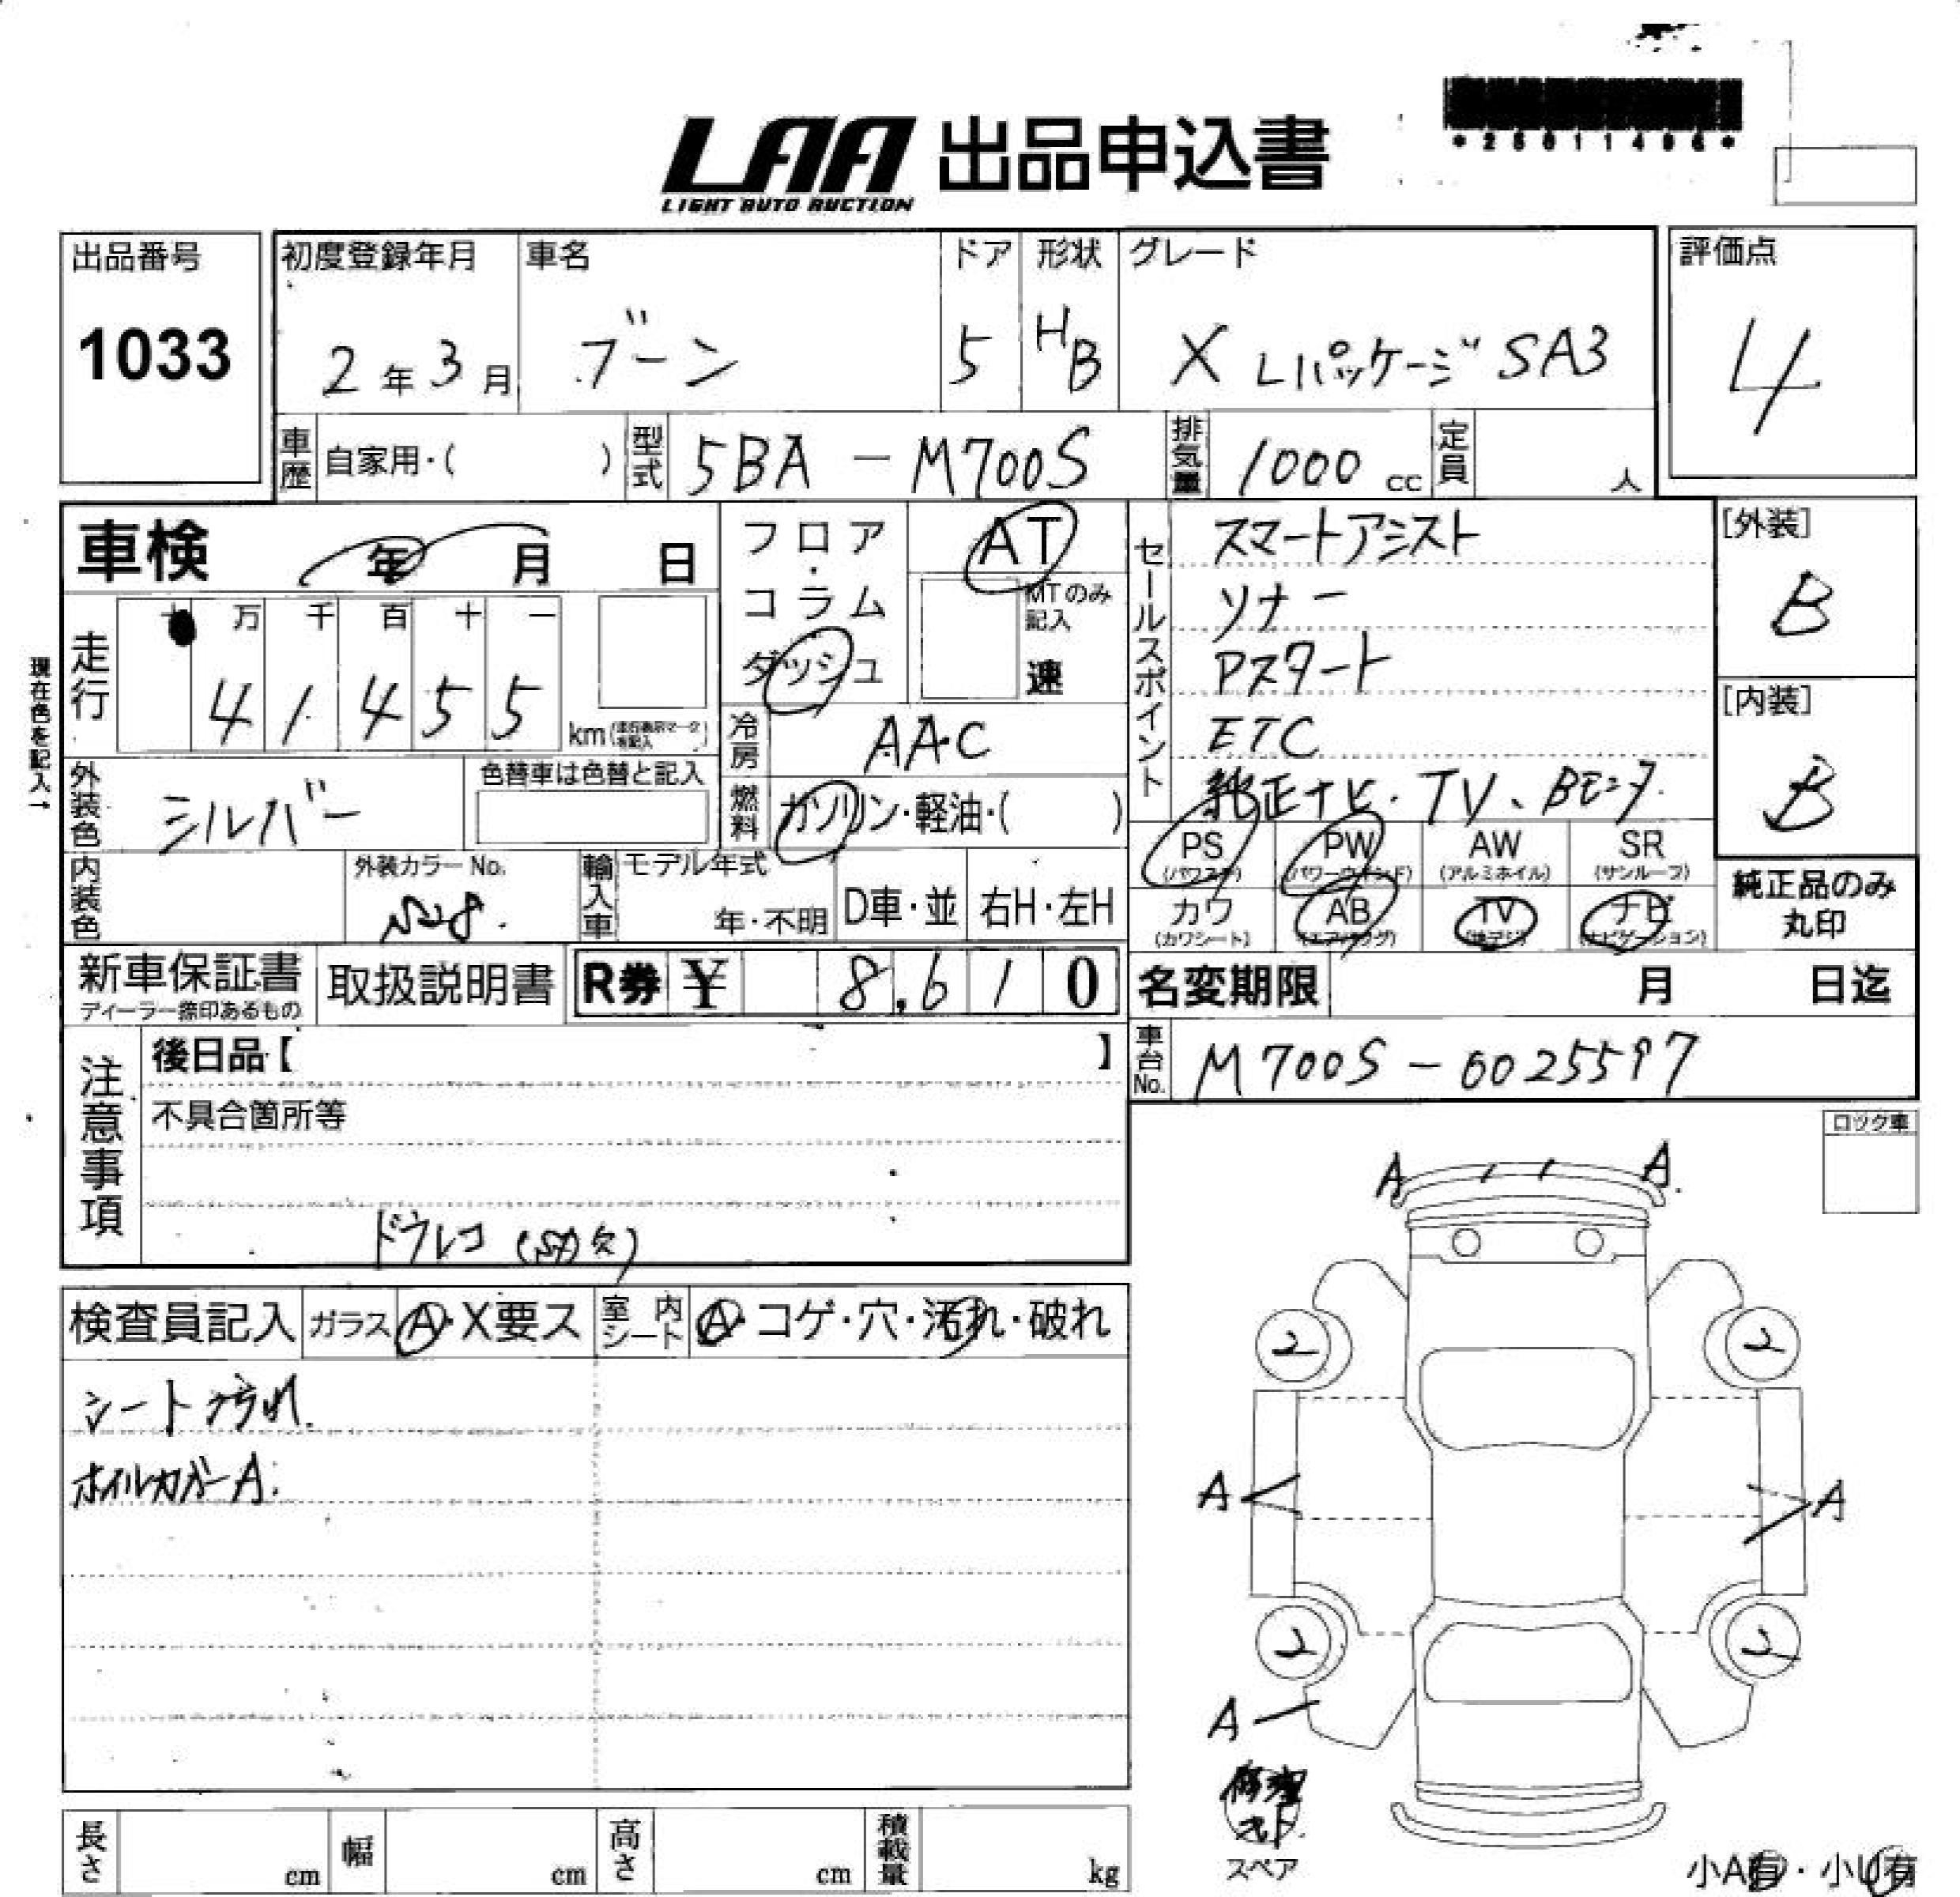 LAA 出品申込書
LIGHT AUTO AUCTION
出品番号
1033
初度登録年月
2年3月
車名
ブーン
ドア
5
形状
HB
グレード
X Lパッケージ SA3
評価点
4
車歴
自家用・( )
型式
5BA-M700S
排気量
1000 cc
定員
人
車検
年 月 日
フロア・コラム
ダッシュ
AT
MTのみ記入
速
セールスポイント
スマートアシスト
ソナー
Pスタート
ETC
純正ナビ・TV、Bモニタ
[外装]
B
[内装]
B
現在色を記入→
走行
十 万 千 百 十 一
4 1 4 5 5
km
冷房
AAC
燃料
ガソリン・軽油・( )
外装色
シルバー
色替車は色替と記入
PS
(パワステ)
PW
(パワーウインド)
AW
(アルミホイル)
SR
(サンルーフ)
カワ
(カワシート)
AB
(エアバッグ)
TV
(地デジ)
ナビ
(ナビゲーション)
純正品のみ
丸印
内装色
外装カラー No.
S28
輸入車
モデル年式
年・不明
D車・並
右H・左H
新車保証書
ディーラー捺印あるもの
取扱説明書
R券 ¥ 8,610
名変期限
月 日迄
車台No.
M700S-0025597
注意事項
後日品【 】
不具合箇所等
ドラレコ (SD欠)
ロック車
検査員記入
ガラス
A・X要ス
室内シート
A・コゲ・穴・汚れ・破れ
シート汚れ
ホイルカバーA
A
A
2
2
A
A
2
2
A
修理キット
スペア
小A有・小U有
長さ
cm
幅
cm
高さ
cm
積載量
kg